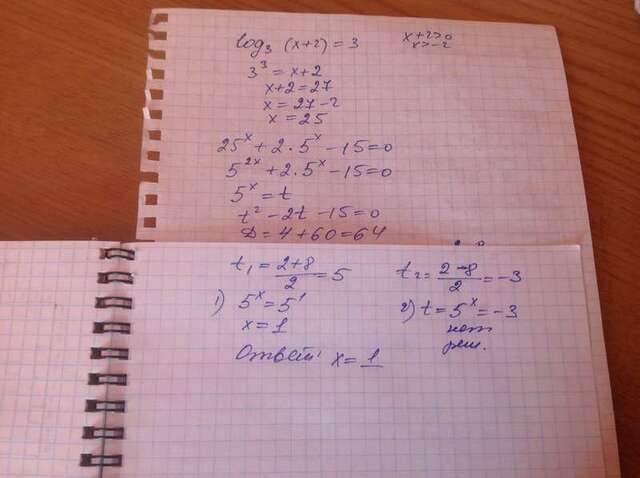 log₃ (x+2) = 3
x+2>0
x>-2
3³ = x+2
x+2 = 27
x = 27-2
x = 25
25ˣ + 2 · 5ˣ - 15 = 0
5²ˣ + 2 · 5ˣ - 15 = 0
5ˣ = t
t² - 2t - 15 = 0
D = 4 + 60 = 64
t₁ = (2+8)/2 = 5
t₂ = (2-8)/2 = -3
1) 5ˣ = 5¹
x = 1
2) t = 5ˣ = -3
нет
реш.
Ответ: x = 1